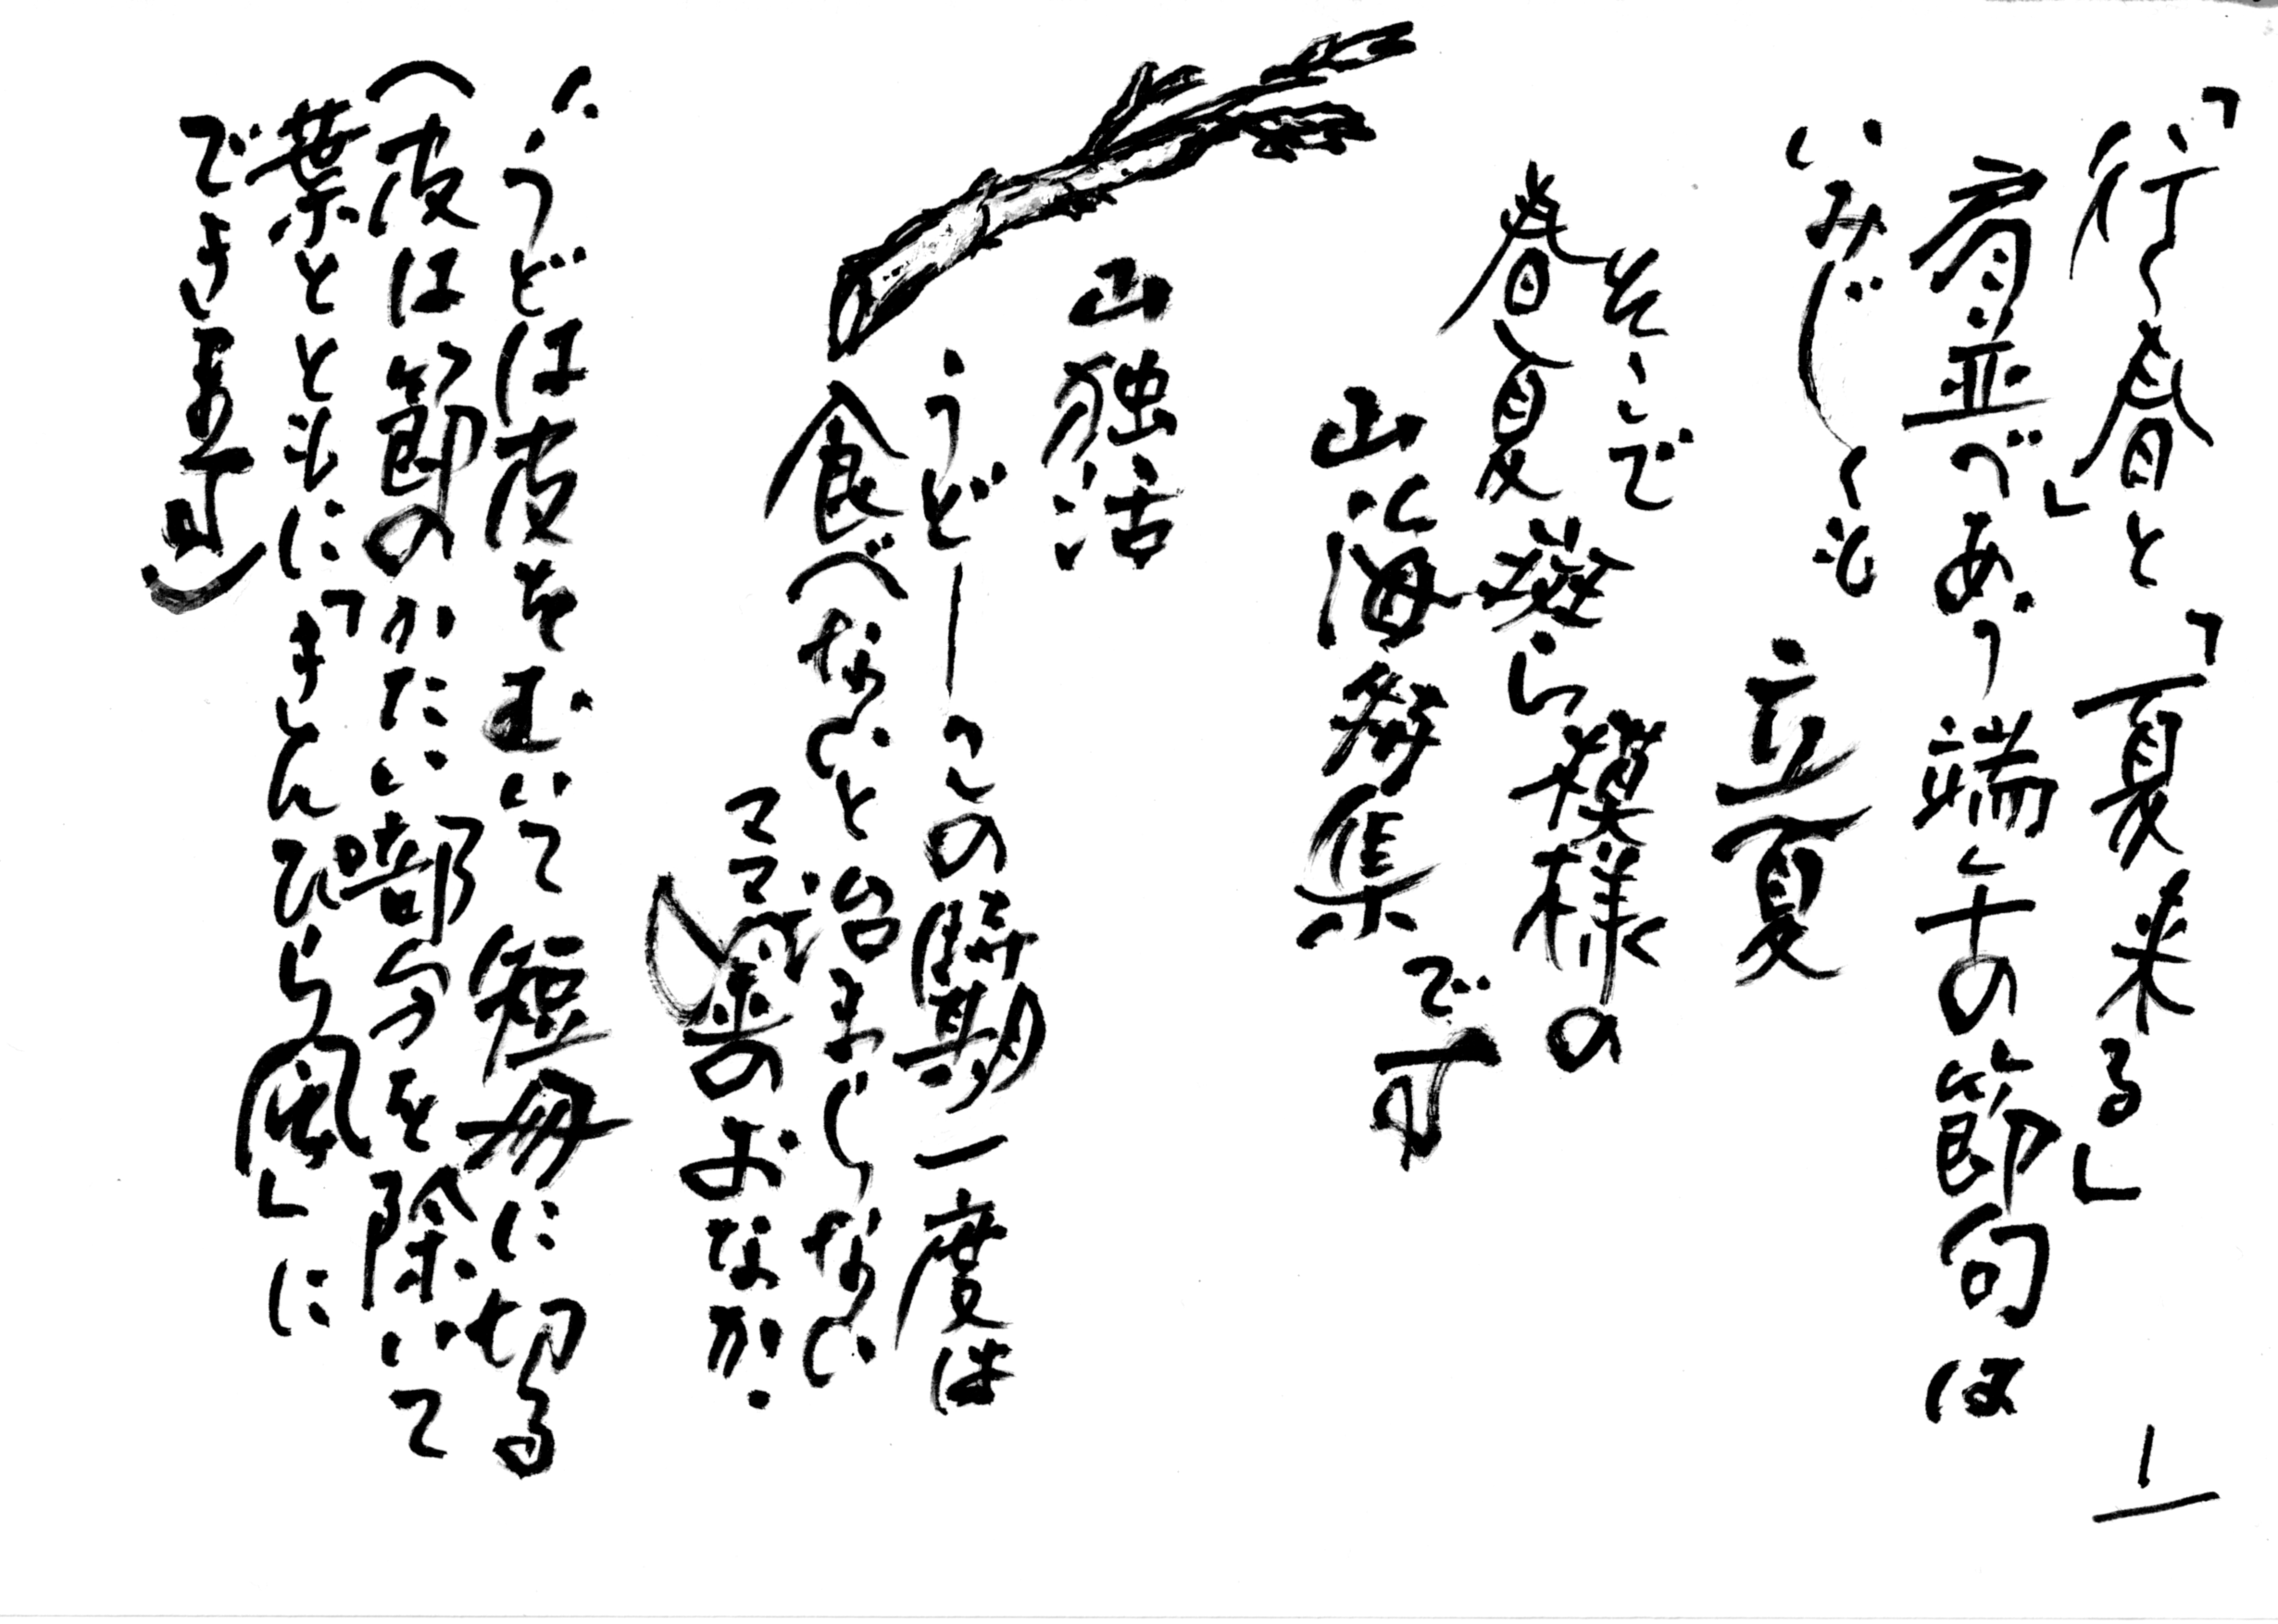 「行く春」と「夏来る」
肩並べあう端午の節句は
いみじくも 立夏
そこで
春夏斑ら模様の
山海努集です
山独活
うど―この時期一度は
食べないと治まらない
マママ世番のおなか.
・うどは皮をむいて短冊に切る
(皮は節のかたい部分を除いて
葉とともに「きんぴら風」に
できます)
上